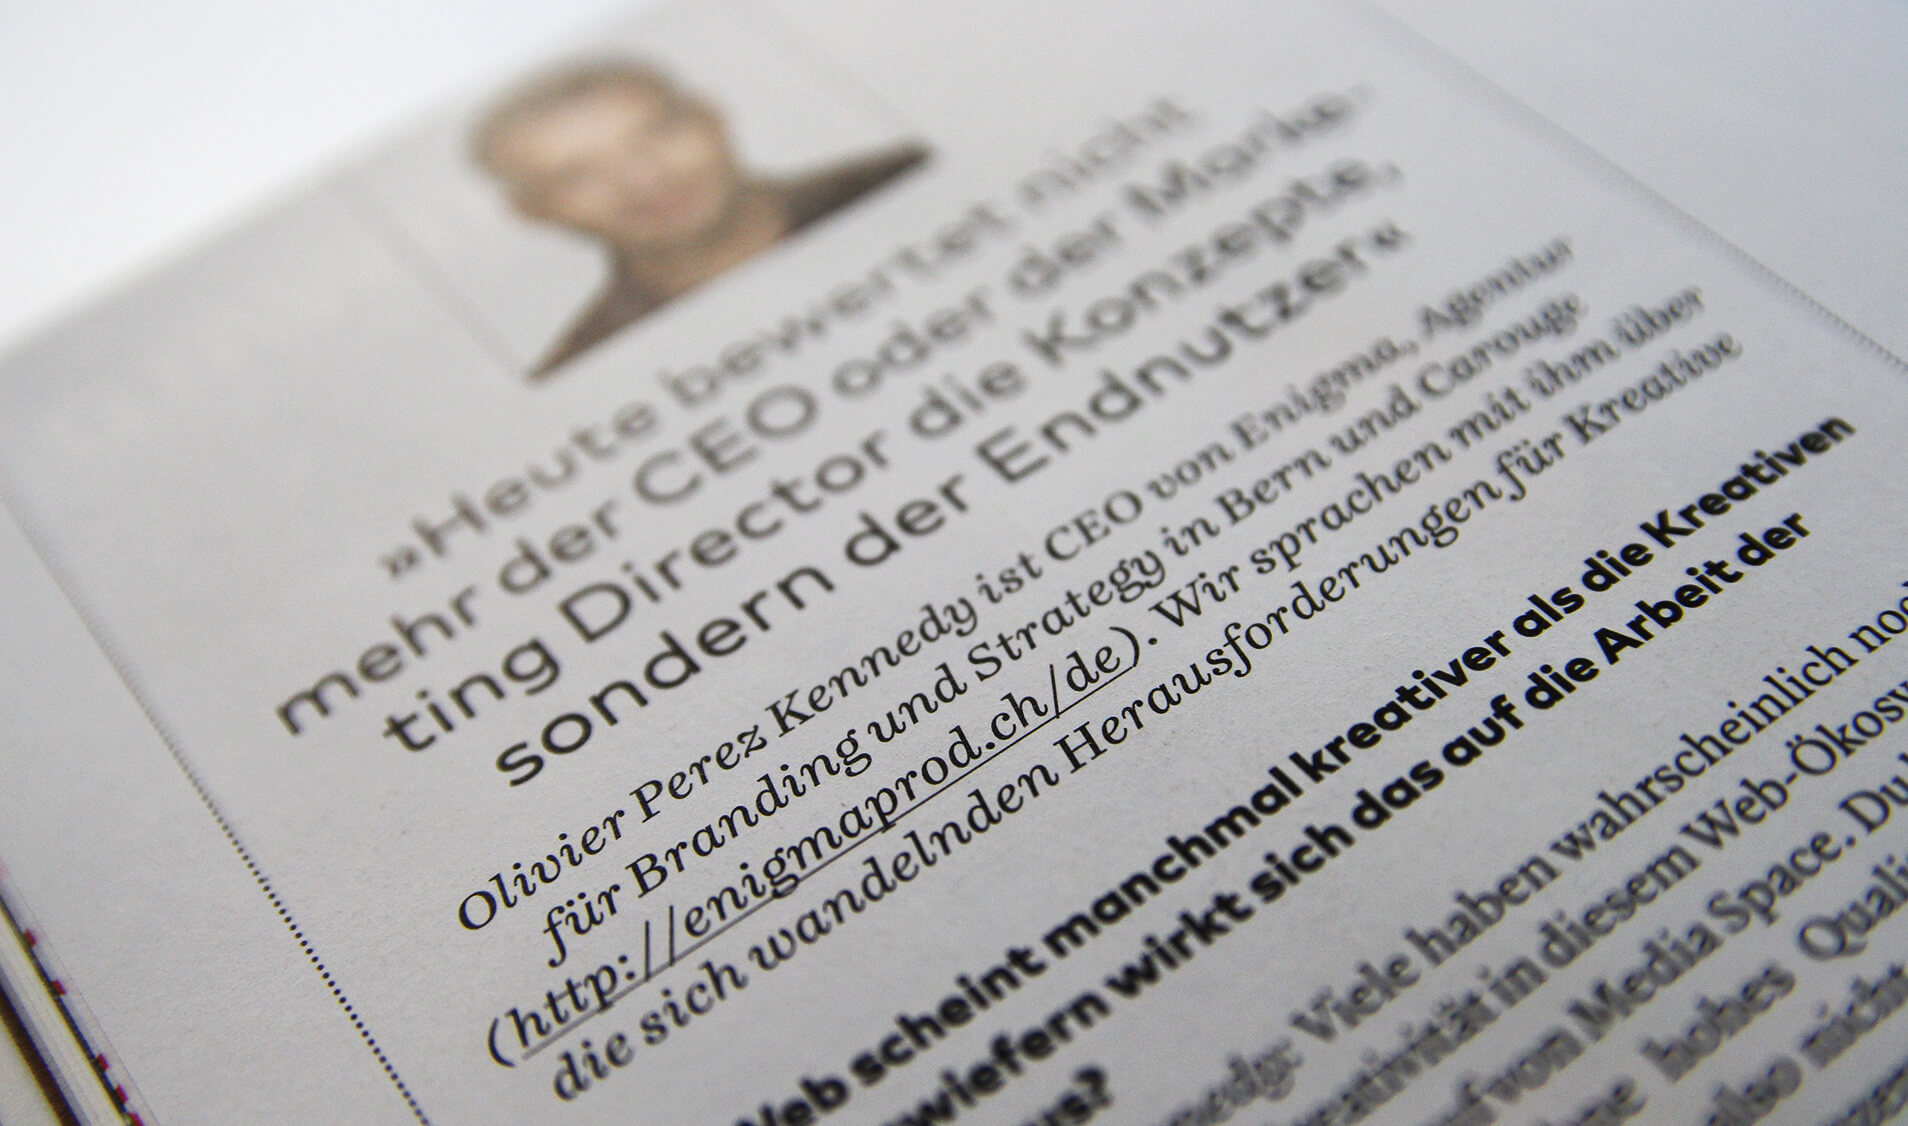 »Heute bewertet nicht
mehr der CEO oder der Marke-
ting Director die Konzepte,
sondern der Endnutzer«
Olivier Perez Kennedy ist CEO von Enigma, Agentur
für Branding und Strategy in Bern und Carouge
(http://enigmaprod.ch/de). Wir sprachen mit ihm über
die sich wandelnden Herausforderungen für Kreative
Web scheint manchmal kreativer als die Kreativen
wiefern wirkt sich das auf die Arbeit der
us?
nedy: Viele haben wahrscheinlich noc
reativität in diesem Web-Ökosy
uf von Media Space. Du
hohes Quali
also nicht